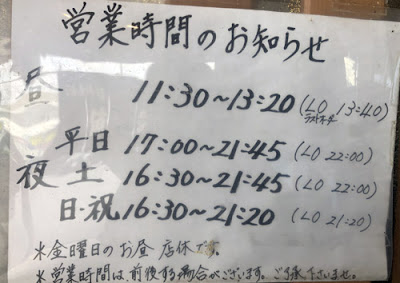 営業時間のお知らせ
昼 11:30~13:20 (LO 13:40)
ラストオーダー
平日 17:00~21:45 (LO 22:00)
夜 土 16:30~21:45 (LO 22:00)
日・祝 16:30~21:20 (LO 21:20)
※金曜日のお昼 店休です。
※営業時間は、前後する場合がございます。ご了承下さいませ。